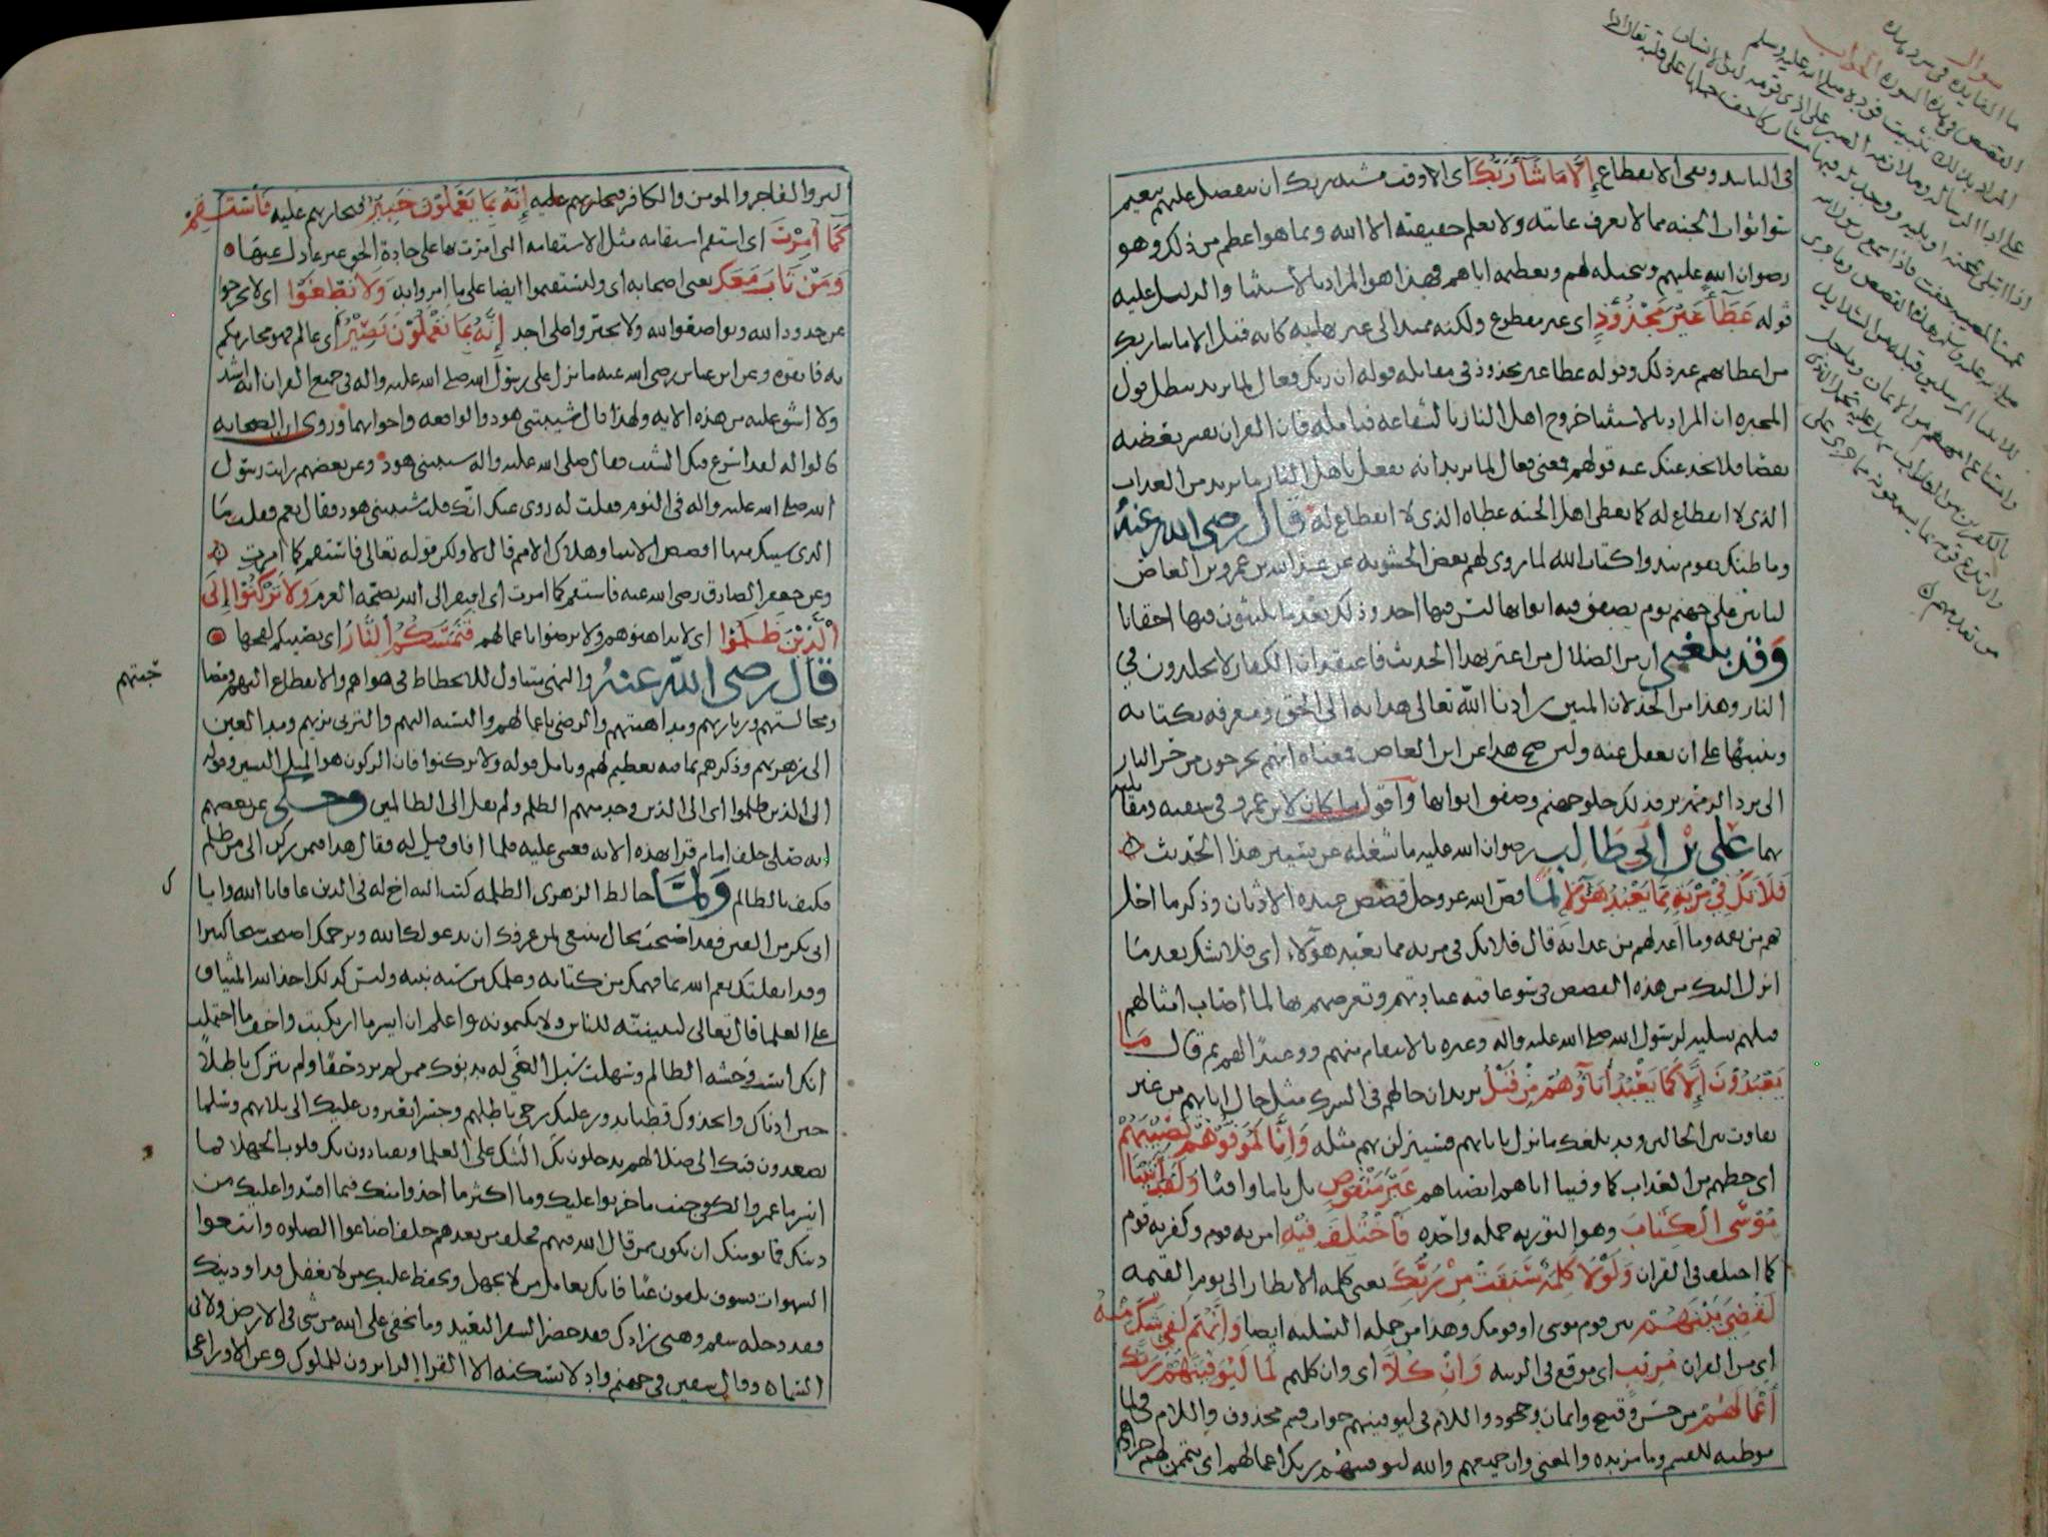 سوال
ما الفايده في سرد هذه
القصص في هذه السوره الجواب
المراد بذلك تثبيت فؤاده صلى الله عليه وسلم
على ادا الرساله وملازمه الصبر على اذى قومه لان الانسان
اذا ابتلى بمحنه او بليه ووجد له فيها مشاركا خف حملها على قلبه
من تقدمهم
في التابيد ونفى الانقطاع إِلَّا مَا شَآءَ رَبُّكَ اى الا وقت مشيه ربك ان يتفضل عليهم بنعيم
سوا ثواب الجنه مما لا يعرف غايته ولا يعلم حقيقته الا الله وبما هو اعظم من ذلك وهو
رضوان الله عليهم وتبجيله لهم وتعظيمه اياهم فهذا هو المراد بالأستثنا والدليل عليه
قوله عَطَآءً غَيْرَ مَجْذُوْذٍ اى غير مقطوع ولكنه ممتد الى غير نهايه كانه قيل الا ما شا ربك
من اعطائهم غير ذلك وقوله عطا غير مجذوذ في مقابله قوله ان ربك فعال لما يريد يبطل قول
المجبره ان المراد بالاستثنا خروج اهل النار بالشفاعه فتامله فان القران يفسر بعضه
بعضا فلا يخدعنك عنه قولهم فمعنى فعال لما يريد انه يفعل باهل النار ما يريد من العذاب
الذى لا انقطاع له كما يعطى اهل الجنه عطاه الذى لا انقطاع له قال رضى الله عنه
وما ظنك بقوم نبذوا كتاب الله لما روى لهم بعض الحشويه عن عبد الله بن عمرو بن العاص
لياتين على جهنم يوم تصفق فيه ابوابها ليس فيها احد وذلك بعد ما يلبثون فيها احقابا
وَقد بلغنى ان من الضلال من اغتر بهذا الحديث فاعتقد ان الكفار لا يخلدون في
النار وهذا من الخذلان المبين زادنا الله تعالى هدايه الى الحق ومعرفه بكتابه
وتنبيها على ان نغفل عنه ولين صح هذا عن ابن العاص فمعناه انهم يخرجون من حر النار
الى برد الزمهرير فذلك خلو جهنم وصفق ابوابها وأقول ما كان لابن عمرو في سيفيه ومقاتلته
بهما على بن ابى طالب رضوان الله عليه ما شغله عن تسيير هذا الحديث
فَلَا تَكُ فِيْ مِرْيَةٍ مِمَّا يَعْبُدُ هَؤُلَآءِ لما قص الله عز وجل قصص عبده الاوثان وذكر ما احل
بهم من نقمه وما اعد لهم من عذابه قال فلا تك في مريه مما يعبد هولاء اى فلا تشك بعد ما
انزل اليك من هذه القصص في سو عاقبه عبادتهم وتعرضهم بها لما اصاب امثالهم
قبلهم تسليه لرسول الله صلى الله عليه واله وعده بالانتقام منهم ووعيدا لهم ثم قال مَا
يَعْبُدُوْنَ إِلَّا كَمَا يَعْبُدُ أٰبَآؤُهُمْ مِنْ قَبْلُ يريد ان حالهم في الشرك مثل حال ابايهم من غير
تفاوت بين الحالين وقد بلغك ما نزل بابايهم فسينزلن بهم مثله وَإِنَّا لَمُوَفُّوْهُمْ نَصِيْبَهُمْ
اى حظهم من العذاب كما وفينا اباهم انصباهم غَيْرَ مَنْقُوْصٍ بل تاما وافيا وَلَقَدْ اٰتَيْنَا
مُوْسَى الكِتَابَ وهو التوريه جمله واحده فَاخْتُلِفَ فِيْهِ امن به قوم وكفر به قوم
كما اختلف في القران وَلَوْلَا كَلِمَةٌ سَبَقَتْ مِنْ رَبِّكَ يعنى كلمه الانظار الى يوم القيمه
لَقُضِيَ بَيْنَهُمْ بين قوم موسى او قومك وهذا من جمله التسليه ايضا وَإِنَّهُمْ لَفِيْ شَكٍّ مِنْهُ
اى من القران مُرِيْبٍ اى موقع في الريبه وَانَّ كُلًّا اى وان كلهم لَمَّا لَيُوَفِّيَنَّهُمْ رَبُّكَ
أَعْمَالَهُمْ من حسن وقبيح وايمان وجحود واللام في ليوفينهم جواب قسم محذوف واللام في لما
موطيه للقسم وما مزيده والمعنى وان جميعهم والله ليوفينهم ربك اعمالهم اى يتممن لهم جزاهم
البر والفاجر والمومن والكافر فيجازيهم عليه إِنَّهُ بِمَا يَعْمَلُوْنَ خَبِيْرٌ فيجازيهم عليه فَاسْتَقِمْ
كَمَا أُمِرْتَ اى استقم استقامه مثل الاستقامه التى امرت بها على جادة الحق غير عادل عنها
وَمَنْ تَابَ مَعَكَ يعنى اصحابه اى وليستقيموا ايضا على ما امروا به وَلَا تَطْغَوْا اى لا تخرجوا
عن حدود الله وتواضعوا لله ولا تجتروا على احد إِنَّهُ بِمَا تَعْمَلُوْنَ بَصِيْرٌ اى عالم فهو مجازيكم
به فاتقوه وعن ابن عباس رضى الله عنه ما نزل على رسول الله صلى الله عليه واله في جميع القران ايه اشد
ولا اشق عليه من هذه الايه ولهذا قال شيبتنى هود والواقعه واخواتهما وروى ان الصحابه
قالوا له لقد اسرع فيك الشيب فقال صلى الله عليه واله شيبتنى هود وعن بعضهم رايت رسول
الله صلى الله عليه واله في النوم فقلت له روى عنك انك قلت شيبتنى هود فقال نعم فقلت ما
الذى شيبك منها اقصص الانبيا وهلاك الامم قال لا ولكن قوله تعالى فاستقم كما امرت
وعن جعفر الصادق رضى الله عنه فاستقم كما امرت اى افتقر الى الله بصحه العزم وَلَا تَرْكَنُوْا إِلَى
الَّذِيْنَ ظَلَمُوْا اى لا تداهنوهم ولا ترضوا باعمالهم فَتَمَسَّكُمُ النَّارُ اى يصيبكم لفحها
قال رضى الله عنه والنهى يتناول للانحطاط في هواهم والانقطاع اليهم ومصا
حبتهم
ومجالستهم وزيارتهم ومداهنتهم والرضى باعمالهم والتشبه بهم والتزى بزيهم ومد العين
الى زهرتهم وذكرهم بما فيه تعظيم لهم وتامل قوله ولا تركنوا فان الركون هو الميل اليسير وقوله
الى الذين ظلموا اى الى الذين وجد منهم الظلم ولم يقل الى الظالمين وحكى عن بعضهم
انه صلى خلف امام فقرا بهذه الايه فغشى عليه فلما افاق قيل له فقال هذا فيمن ركن الى من ظلم
فكيف بالظالم وَلَمَّا خالط الزهرى الظلمه كتب اليه اخ له في الدين عافانا الله وايا
ك
ابى بكر من الفتن فقد اصبحت بحال ينبغى لمن عرفك ان يدعو لك الله ويرحمك اصبحت شيخا كبيرا
وقد اثقلتك نعم الله بما فهمك من كتابه وعلمك من سنه نبيه وليس كذلك اخذ الله الميثاق
على العلما قال تعالى لتبيننه للناس ولا تكتمونه واعلم ان ايسر ما ارتكبت واخف ما احتملت
انك انست وحشه الظالم وسهلت سبل الغى له بدنوك ممن لم يرد حقا ولم يترك باطلا
حين ادناك واتخذوك قطبا يدور عليك رحى باطلهم وجسرا يعبرون عليك الى بلائهم وسلما
يصعدون فيك الى ضلالهم يدخلون بك الشك على العلما ويقتادون بك قلوب الجهلا فما
ايسر ما عمروا لك في جنب ما خربوا عليك وما اكثر ما اخذوا منك فيما افسدوا عليك من
دينك فما يومنك ان تكون ممن قال الله فيهم فخلف من بعدهم خلف اضاعوا الصلوه واتبعوا
الشهوات فسوف يلقون غيا فانك تعامل من لا يجهل ويحفظ عليك من لا يغفل فداو دينك
فقد دخله سقم وهيى زادك فقد حضر السفر البعيد وما يخفى على الله من شى في الارض ولا فى
السماء وقال سفين في جهنم واد لا يسكنه الا القرا الزايرون للملوك وعن الاوزاعى